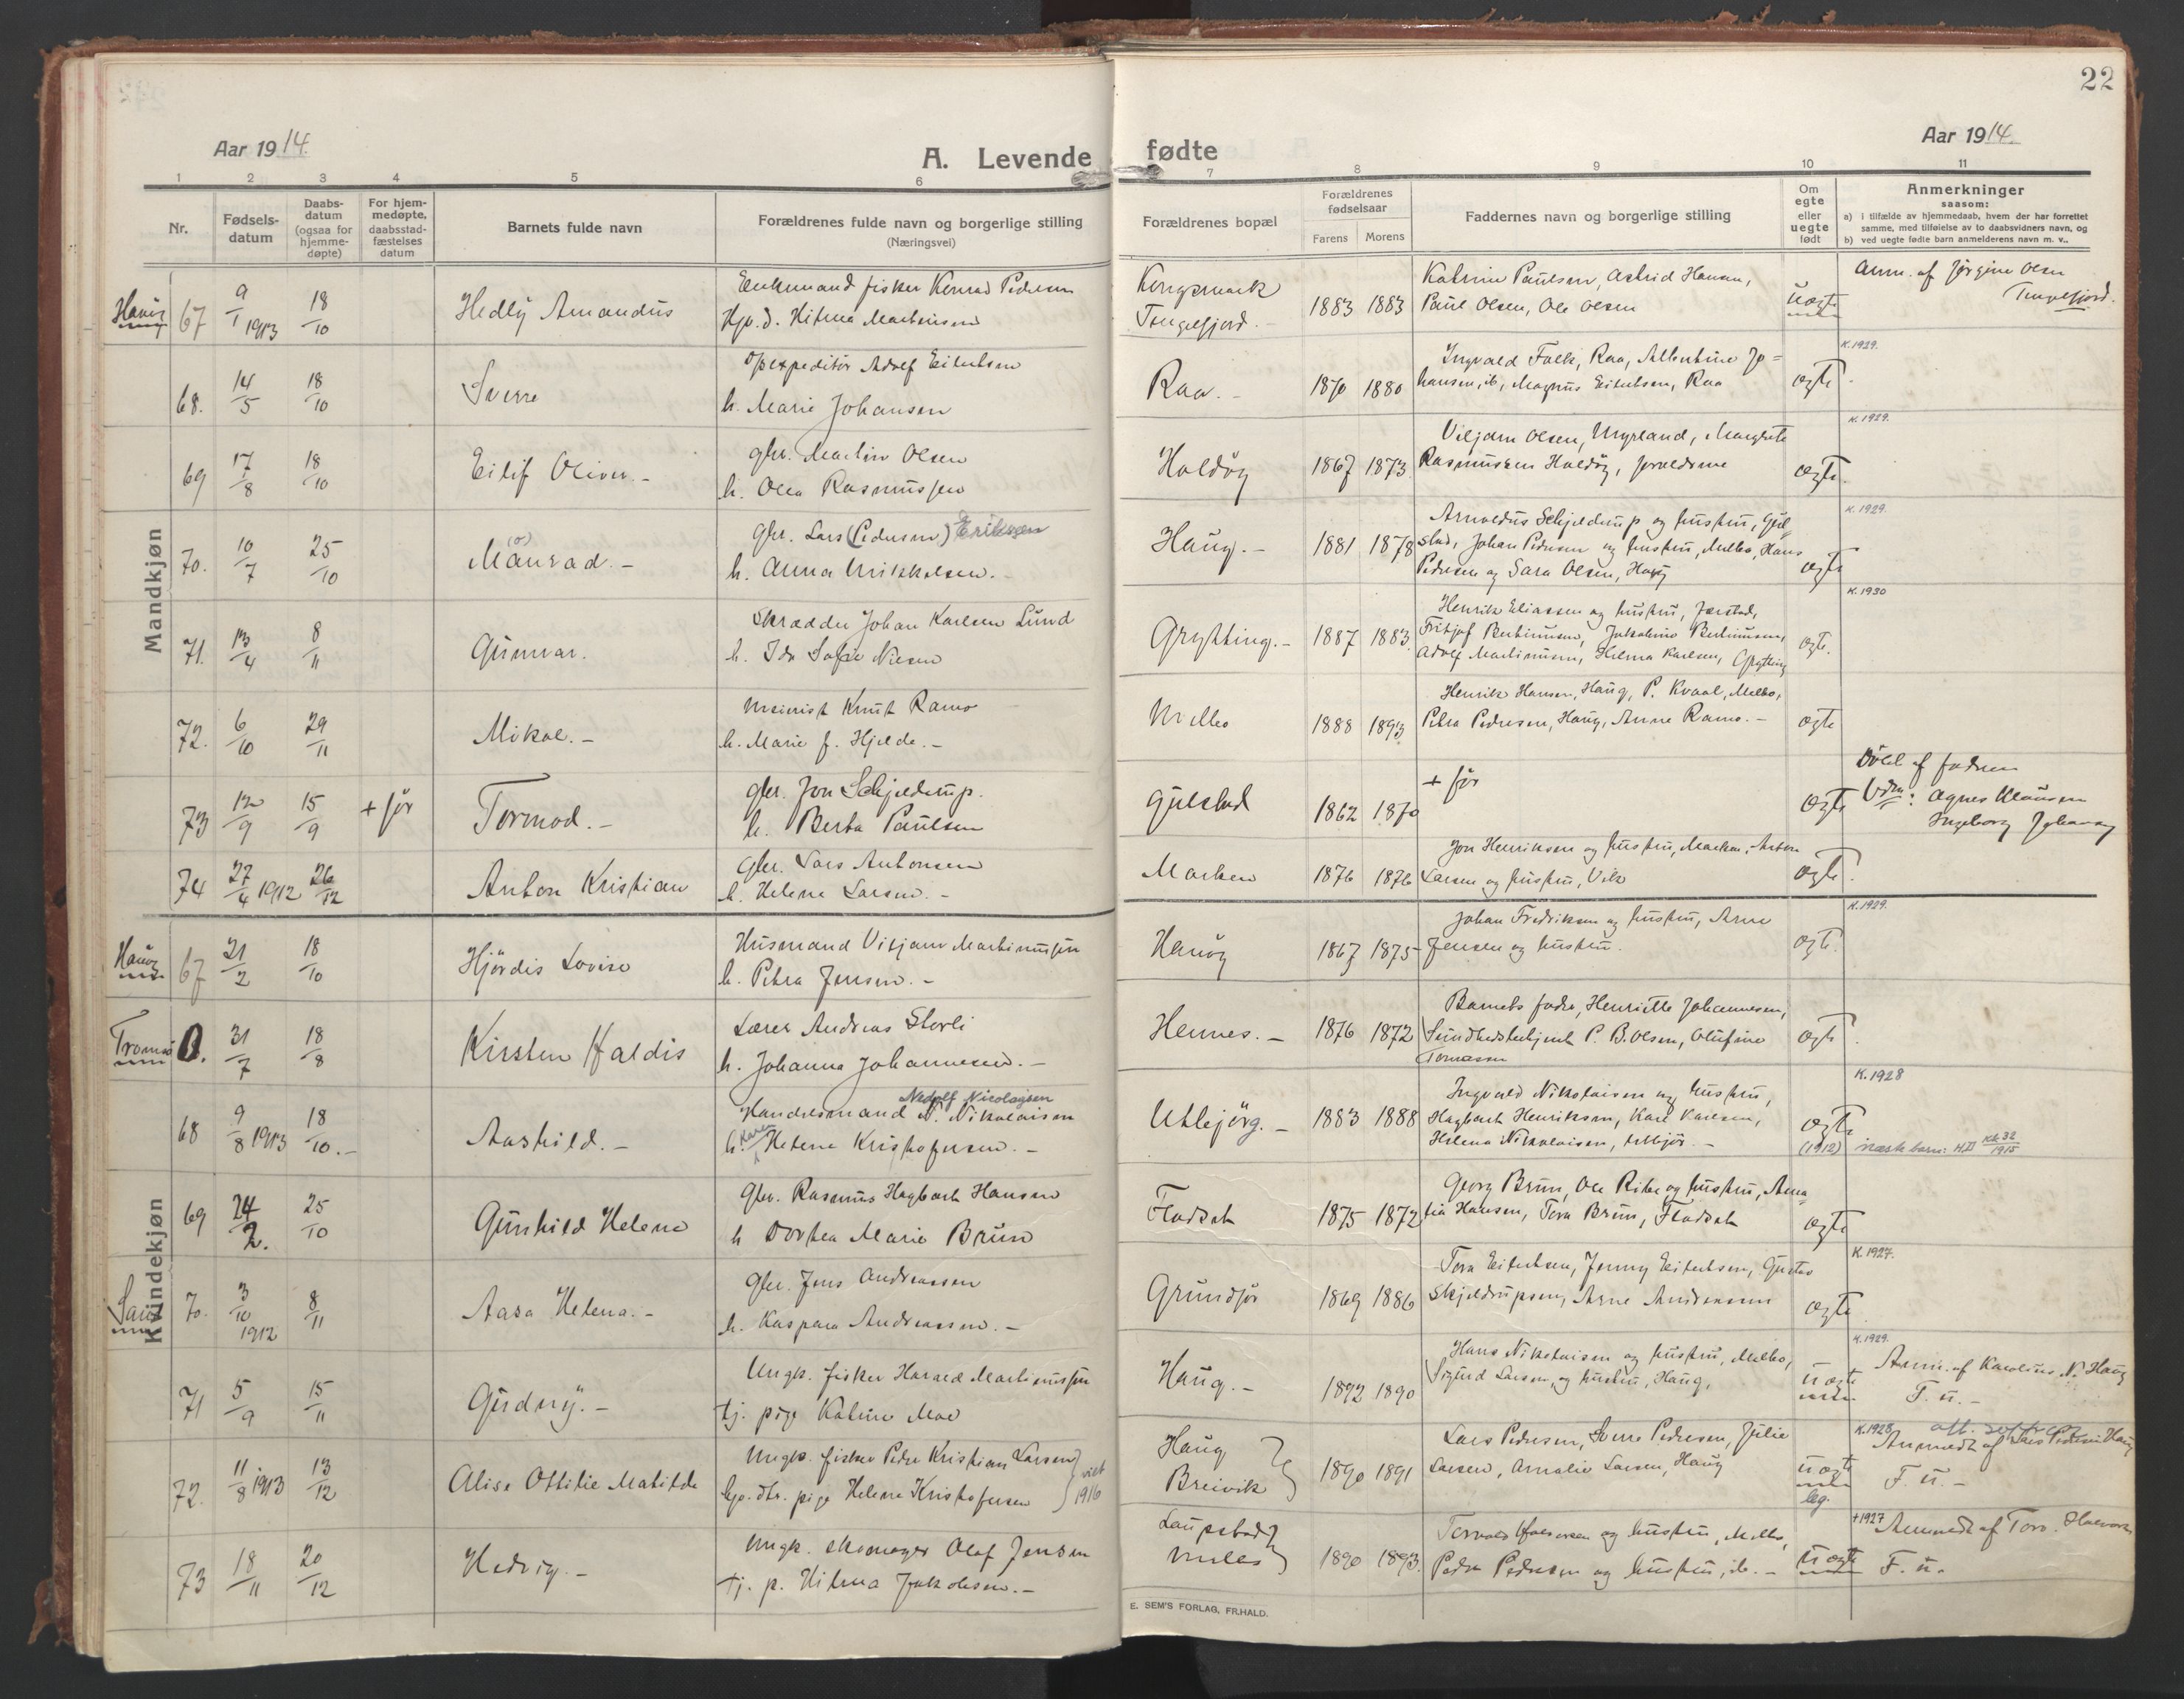 22
Aar 1914.
A. Levende fødte
Aar 1914.
1 2 3 4 5 6 7 8 9 10 11
Nr.
Fødsels-
datum
Daabs-
datum
(ogsaa for
hjemme-
døpte)
For hjem-
medøpte,
daabsstad-
fæstelses
datum
Barnets fulde navn
Forældrenes fulde navn og borgerlige stilling
(Næringsvei)
Forældrenes bopæl
Forældrenes
fødselsaar
Farens Morens
Faddernes navn og borgerlige stilling
Om
egte
eller
uegte
født
Anmerkninger
saasom:
a) i tilfælde av hjemmedaab, hvem der har forrettet
samme, med tilføielse av to daabsvidners navn, og
b) ved uegte fødte barn anmelderens navn m. v..
Mandkjøn
67 9/1 1913 18/10 Hedly Amandus
Enkemand fisker Konrad Pedersen
Hilma
Kongsmark
Tengelfjord.
1883 1883
Katrine Paulsen, Astrid Hansen,
Paul Olsen, Ole Olsen
uegte
Anm. af Jørgine Olsen
Tengelfjord.
68. 14/5 18/10 Sverre
Adolf Eilertsen
h. Marie Johansen
Raa. -
1870 1880
Ingvald Falk, Raa, Albertine Jo=
hansen, ib, Magnus Eilertsen, Raa
egte
K. 1929.
69 17/8 18/10 Eilif Oliver. -
gbr. Martin Olsen
h. Olea Rasmussen
Holdøy
1867 1873
Viljam Olsen, Myrland, Margrete
Rasmussen Holdøy, forældrene
egte.
K. 1929.
70. 10/7 25/10 Manrad. -
(o)
gbr. Lars (Pedersen) Eriksen
h. Anna Mikkelsen. -
Haug. -
1881 1878
Arnoldus Schjelderup og hustru, Gul-
stad, Johan Pedersen og hustru, Melbo, Hans
Pedersen og Sara Olsen, Haug
egte
K. 1929.
71. 13/4 8/11 Gunvar.
Skrædder Johan Karlsen Lund
h. Ida Sofie Nilsen
Grytting. -
1887 1883.
Henrik Eliassen og hustru, Jørstad,
Fritjof Bertinusen, Jakobine Bertinusen,
Adolf Martinusen, Helma Karlsen, Grytting
egte.
K. 1930
72. 6/10 29/11 Mikal. -
Meierist Knut Ramo
h. Marie f. Hjelde. -
Melbo
1888 1893
Henrik Hansen, Haug, P. Kvaal, Melbo,
Petra Pedersen, Haug, Anne Ramo. -
egte
73 12/9 15/9 + før Tormod. -
gbr. Jon Schjelderup.
h. Berta Paulsen
Gulstad
1862 1870
+ før
egte
Døbt af faderen
Vidner: Agnes Klausen
Ingeborg
74 27/4 1912 26/12 Anton Kristian
gbr. Lars Antonsen
h. Helene Larsen. -
Marken
1876 1876
Jon Henriksen og hustru, Marken, Anton
Larsen og hustru, Vik
egte
Kvindekjøn
67 21/2 18/10 Hjørdis Lovise
Husmand Viljam Martinussen
h. Petra Jensen. -
Hanøy
1867 1875
Johan Fredriksen og hustru, Arne
Jensen og hustru.
egte.
K. 1929.
Tromsø
0. 31/7 18/8 Kirsten Haldis
Lærer Andreas Storli
h. Johanna Johannesen. -
Hennes. -
1876 1872
Barnets fader, Henriette Johannesen,
Sundhedsbetjent P. B. Olsen, Olufine
Tomassen
egte
68 9/8 1913 18/10. - Aashild. -
Nedolf Nicolaysen
Handelsmand N. Nikolaisen
h. Karen Helene Kristofersen. -
Utbjørg. -
1883 1888
Ingvald Nikolaisen og hustru,
Hagbart Henriksen, Karl Karlsen,
Helena Nikolaisen,
egte
(1912)
K. 1928
næste barn: 1915
69 24/2. 25/10 Gunhild Helene
Gbr. Rasmus Hagbart Hansen
h Dortea Marie Brun
Fladsæt
1875 1872
Georg Brun, Ole Ribe og hustru, Ama-
lia Hansen, Tora Brun, Fladsæt
egte
70. 3/10 1912 8/11 Aasa Helena. -
Gbr. Jens Andreassen
h. Kaspara Andreassen. -
Grundfør
1869 1886
Tora Eilertsen, Jenny Eilertsen, Gustav
Skjeldrupsen, Arne Andreassen
egte
K. 1927.
71 5/9 15/11 Gudny. -
Ungk. fisker Harald Martinussen
tj. pige Katrine Moe
Haug. -
1892 1890
Hans Nikolaisen og hustru, Melbo,
Sigurd Larsen, og hustru, Haug,
uegte
K. 1929.
Anm. af Karolius N. Haug
F. u. -
72. 11/8 1913 13/12 Alise Ottilie Matilde
Ungk. fisker Peder Kristian Larsen
pige Helene Kristofersen
viet
1916
Haug
Breivik
1890 1891
Lars Pedersen, Sverre Pedersen, Julie
Larsen, Amalie Larsen, Haug
uegte
leg.
K. 1928
Anmeldt af Lars Pedersen Haug
F. u. -
73 18/11 20/12 Hedvig. -
Ungk. skomager Olaf Jensen
tj. p. Hilma Jakobsen. -
Laupstad
Melbo
1890 1893.
Torvald Halvorsen og hustru, Melbo,
Peder Pedersen og hustru, ib. -
uegte
+ 1927
Anmeldt af Torv. Halvorsen
F. u.
E. SEM'S FORLAG, FR.HALD.